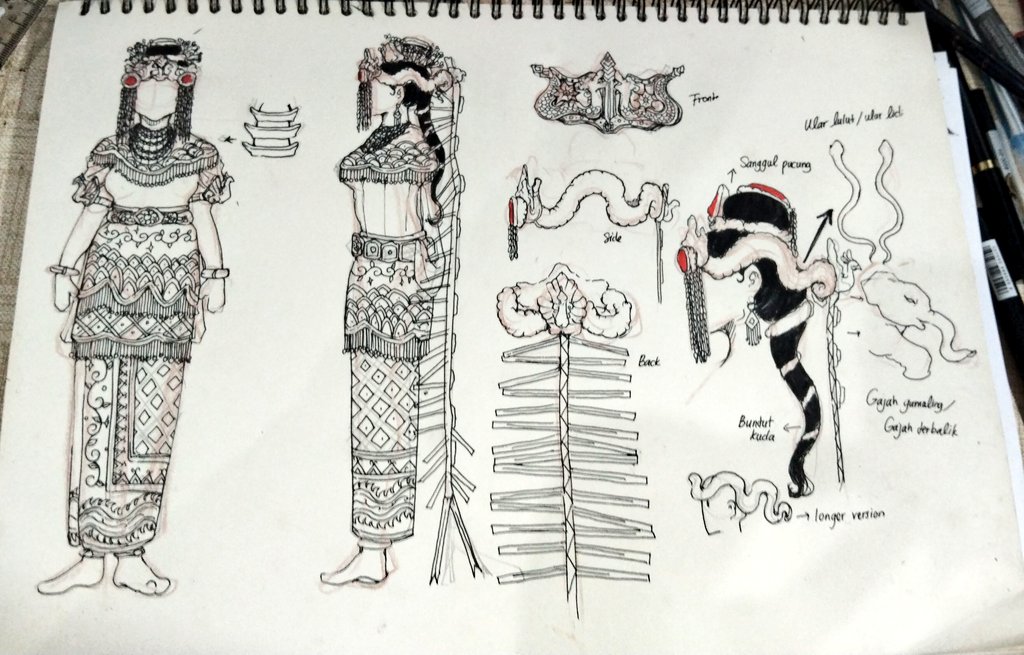 Front
Side
Back
Sanggul pucung
Ular lulut / ular lidi
Buntut
kuda
Gajah gumaling /
Gajah terbalik
longer version